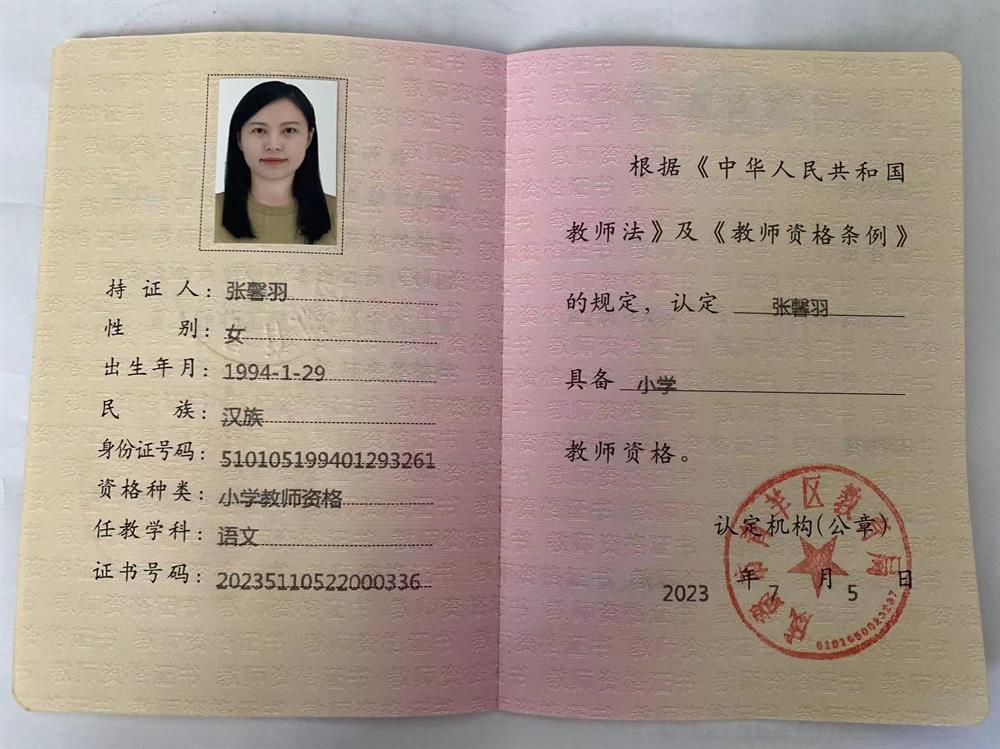 持证人：张馨羽
性别：女
出生年月：1994-1-29
民族：汉族
身份证号码：510105199401293261
资格种类：小学教师资格
任教学科：语文
证书号码：20235110522000336
根据《中华人民共和国
教师法》及《教师资格条例》
的规定，认定 张馨羽
具备 小学
教师资格。
认定机构(公章)
2023年7月5日
成都市青羊区教育局